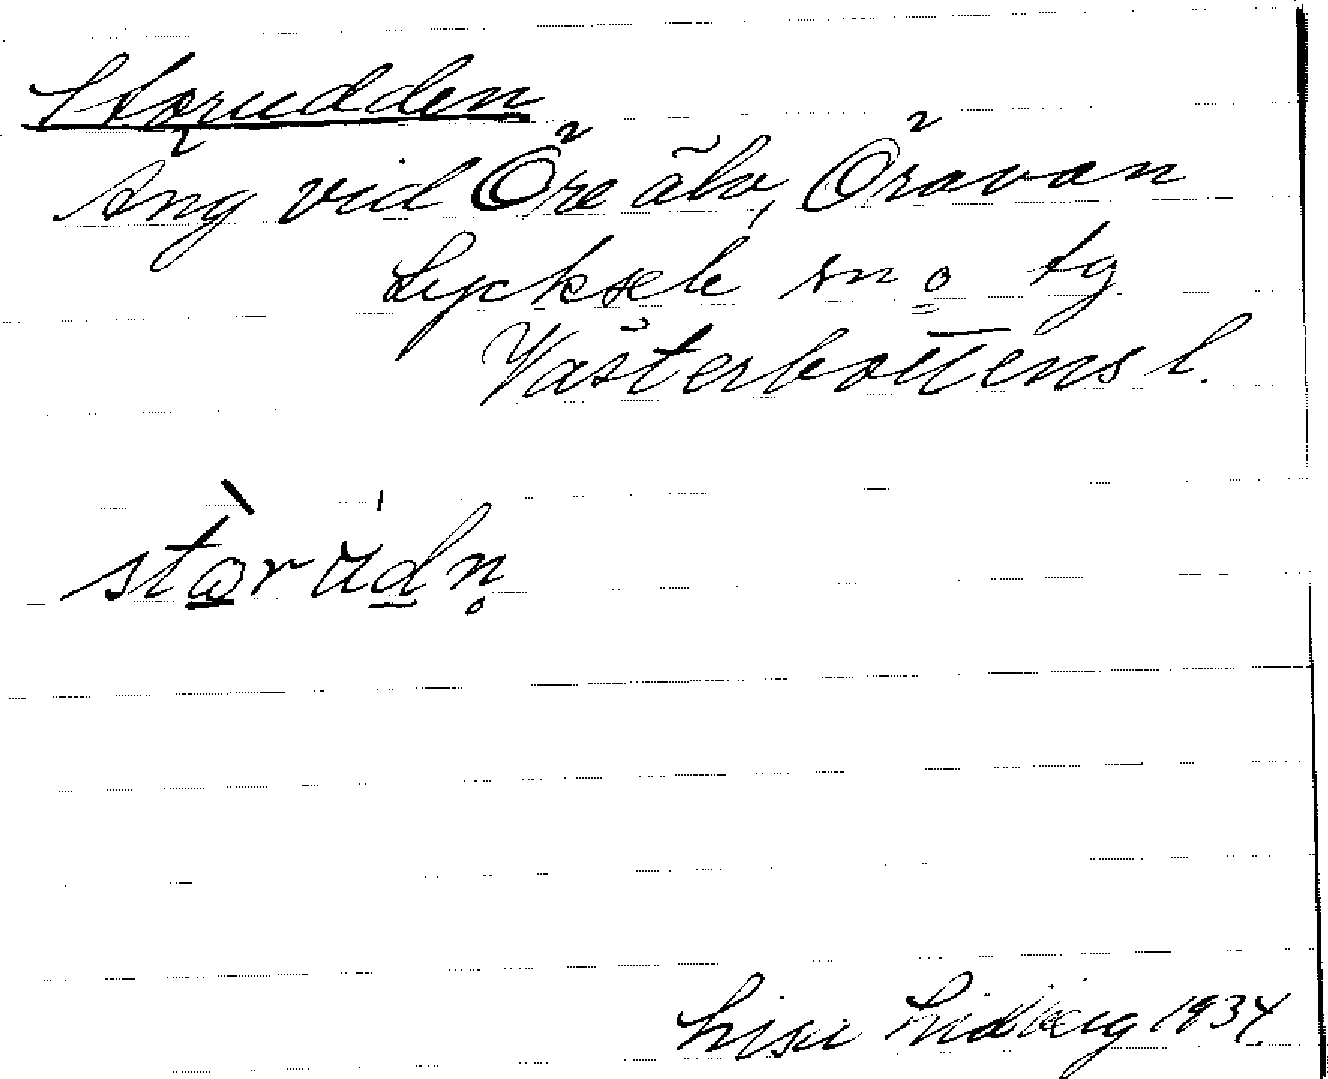 Storudden
Äng vid Öre älv, Öravan
Lycksele sn o tg
Västerbottens l.
stòrúdn̥
Lisa Lidberg 1934